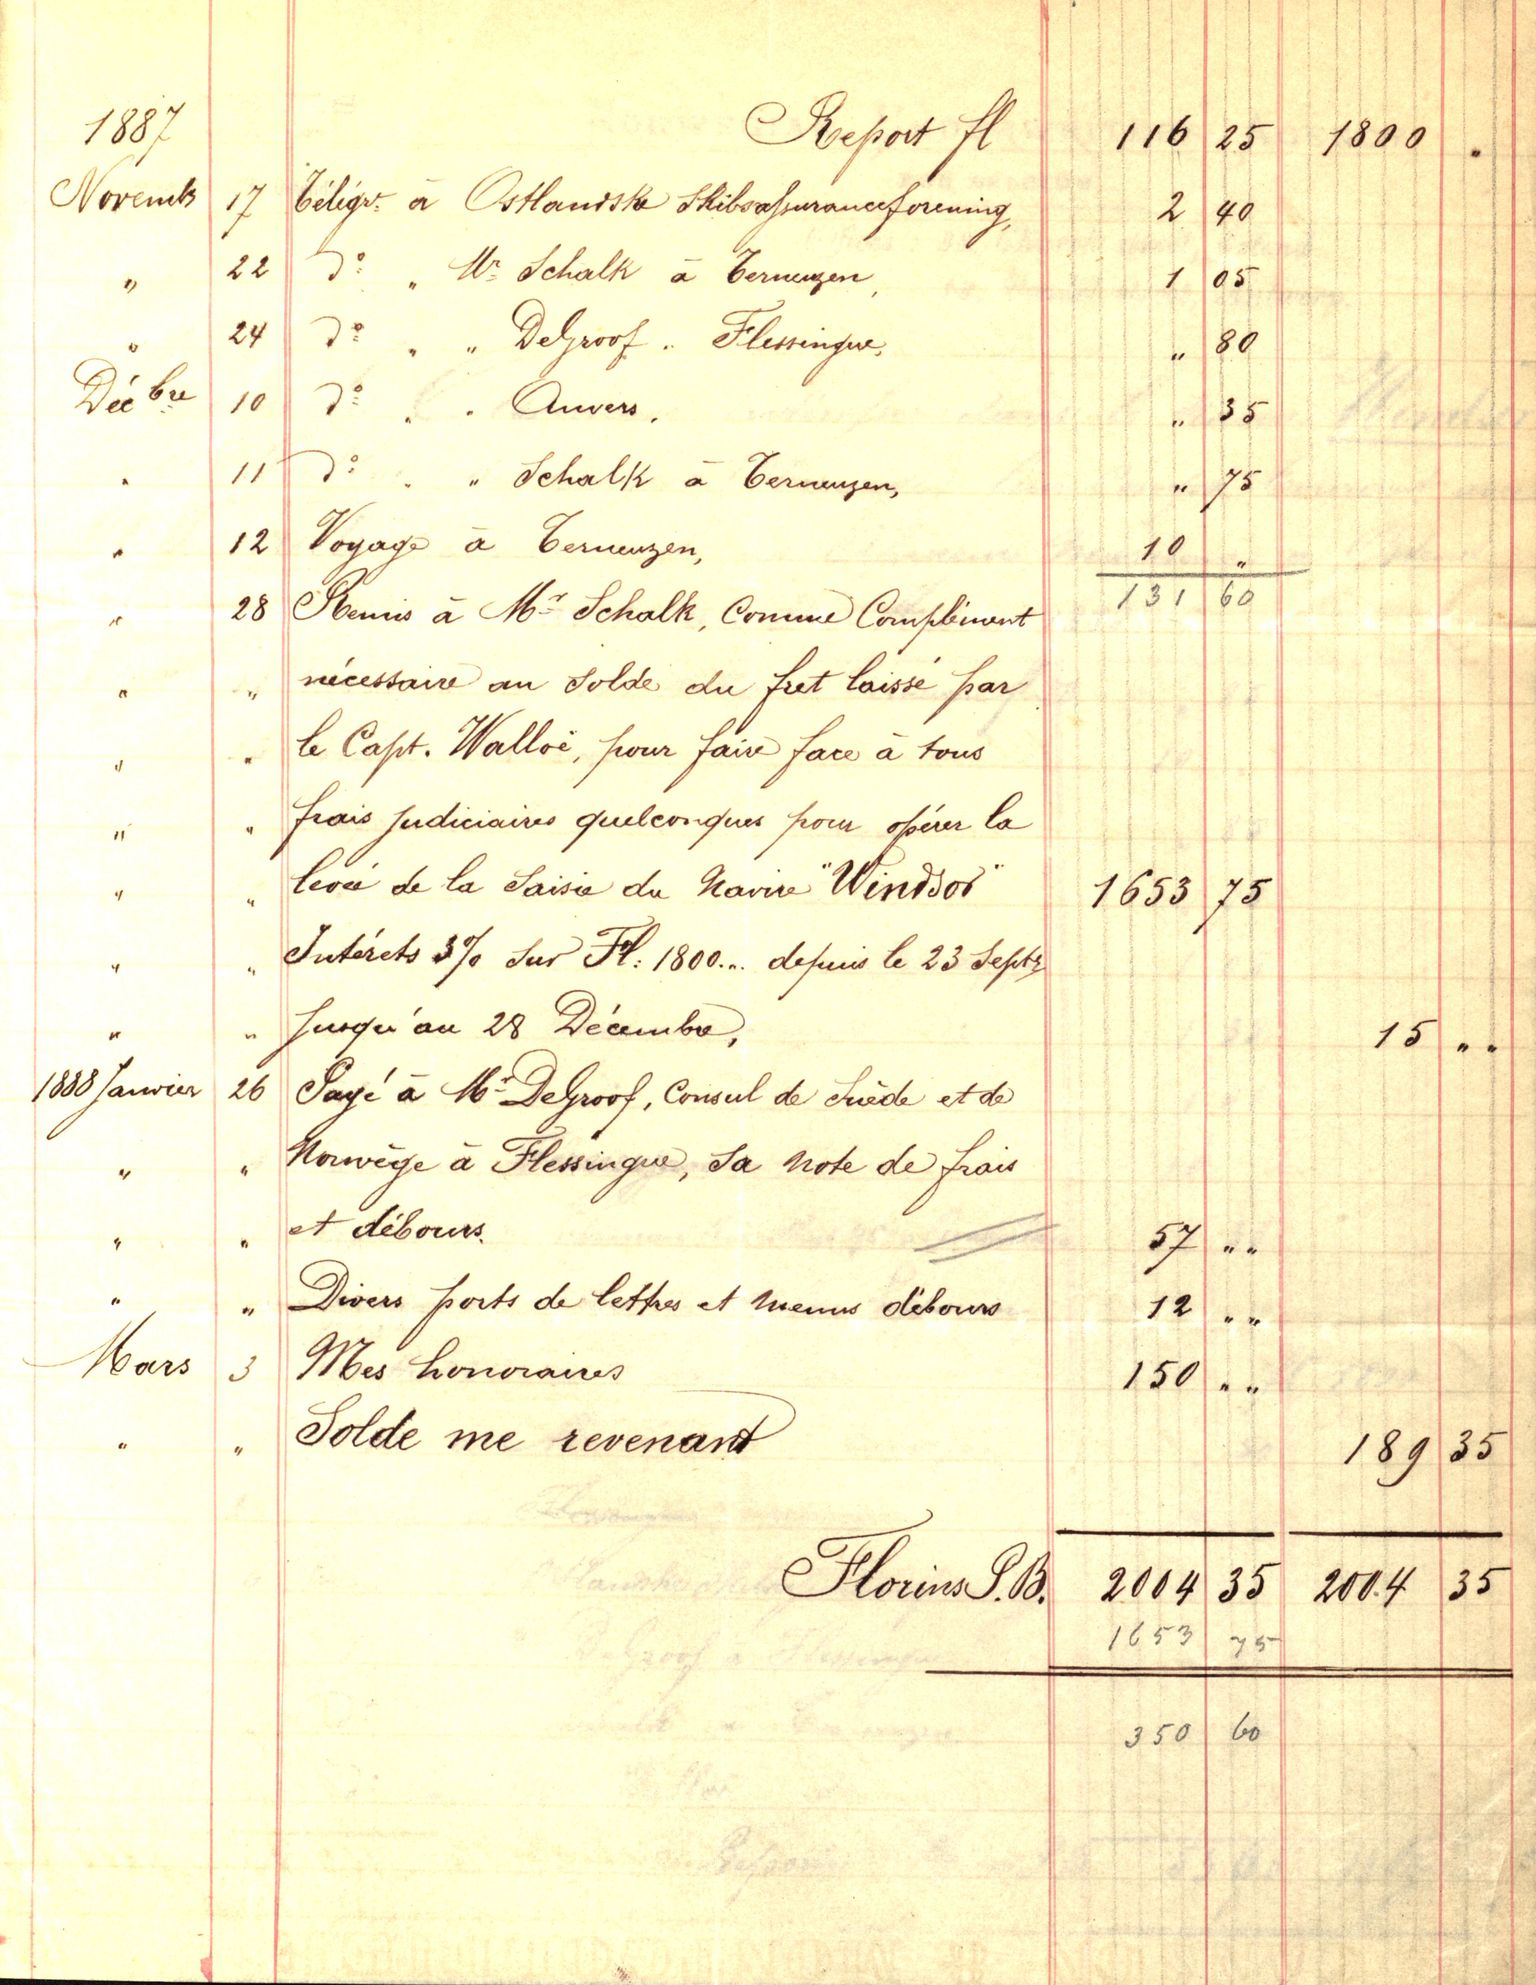 1887 Report fl 116 25 1800 .
Novembr 17 Télégr. à Ostlandske Skibsassuranceforening, 2 40
" 22 do " Mr Schalk à Terneuzen, 1 05
" 24 do " " DeGroof " Flessingue, " 80
Décbre 10 do " " Anvers, " 35
" 11 do " " Schalk à Terneuzen, " 75
" 12 Voyage à Terneuzen, 10 "
131 60
" 28 Remis à Mr Schalk, comme Complément
" " nécessaire au solde du fret laissé par
" " le Capt. Walloë, pour faire face à tous
" " frais judiciaires quelconques pour opérer la
" " levée de la saisie du Navire "Windsor" 1653 75
" " Intérets 3% sur Fl: 1800... depuis le 23 Septb
" " jusqu'au 28 Décembre, 15 " "
1888 Janvier 26 Payé à Mr DeGroof, consul de Suède et de
" " Norwège à Flessingue, sa note de frais
" " et débours. 57 " "
" " Divers ports de lettres et menus débours 12 " "
Mars 3 Mes honoraires 150 " "
" " Solde me revenant 189 35
Florins P.B. 2004 35 2004 35
1653 75
350 60